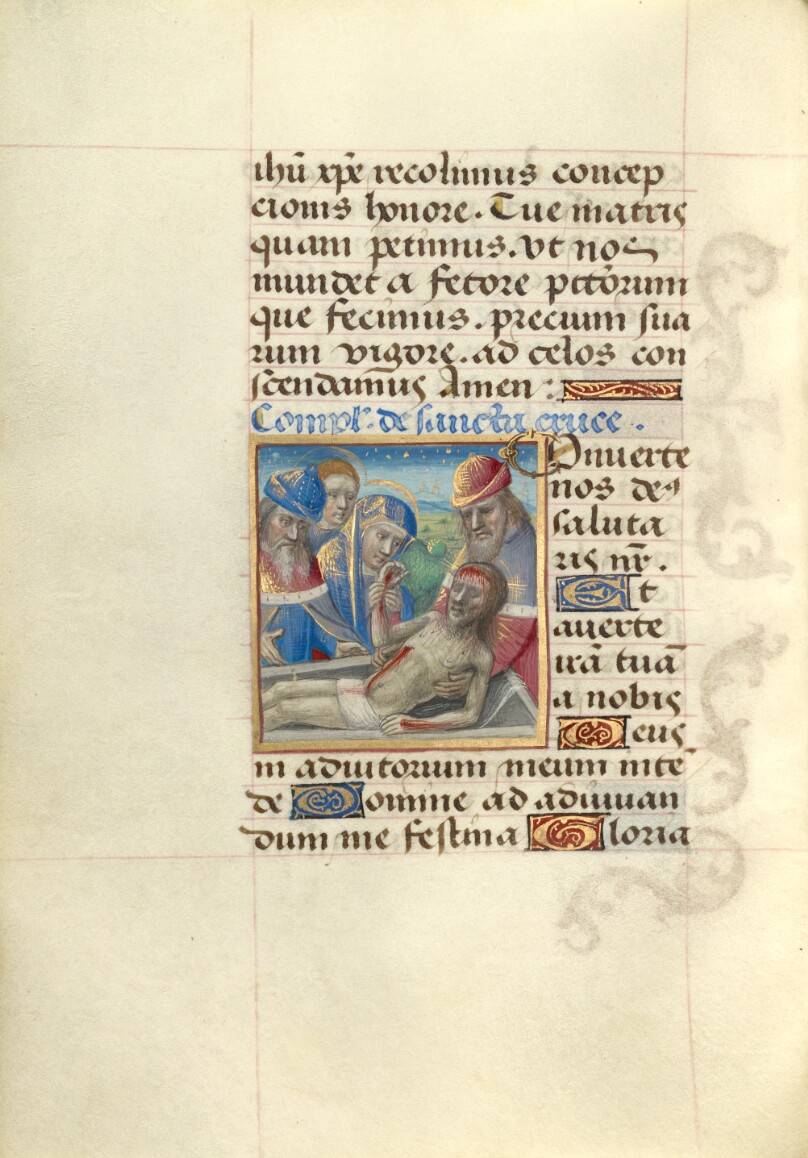 ihũ xp̃e recolimus concep
cionis honore. Tue matris
quam petimus. vt nos
mundet a fetore pctõrum
que fecimus. precium sua
rum vigore. ad celos con
scendam̃us Amen :
Compl̃. de sancta cruce .
Conuerte
nos de9
saluta
ris nr̃ .
Et
auerte
irã tuã
a nobis
Deus
in adiutorium meum inte
de Domine ad adiuuan
dum me festina Gloria